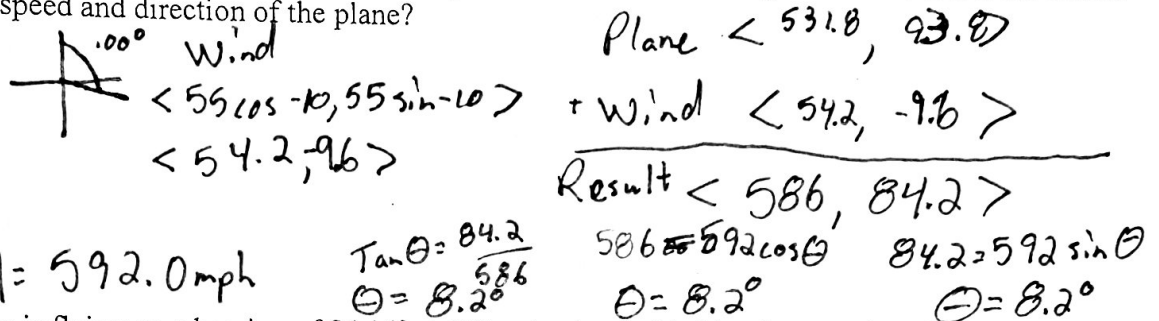 speed and direction of the plane?
100° Wind
<55cos -10, 55 sin-10>
<54.2, -9.6>
Plane <531.8, 93.8>
+ Wind <54.2, -9.6>
Result <586, 84.2>
|= 592.0mph
Tanθ= 84.2/586
θ= 8.2°
586=592cosθ
θ= 8.2°
84.2=592 sinθ
θ=8.2°